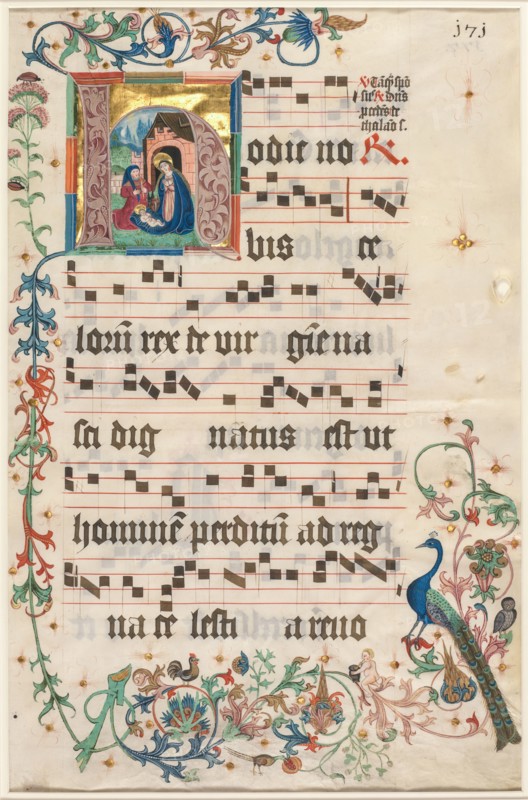 171
V Tāq̄ spō
sus R dn̄s
pcedēs de
thalāo s.
Hodie no R.
bis ce
lorū rex de vir gīe na
sci dig nātus est ut
hominē perditū ad reg
na ce lesti a revo